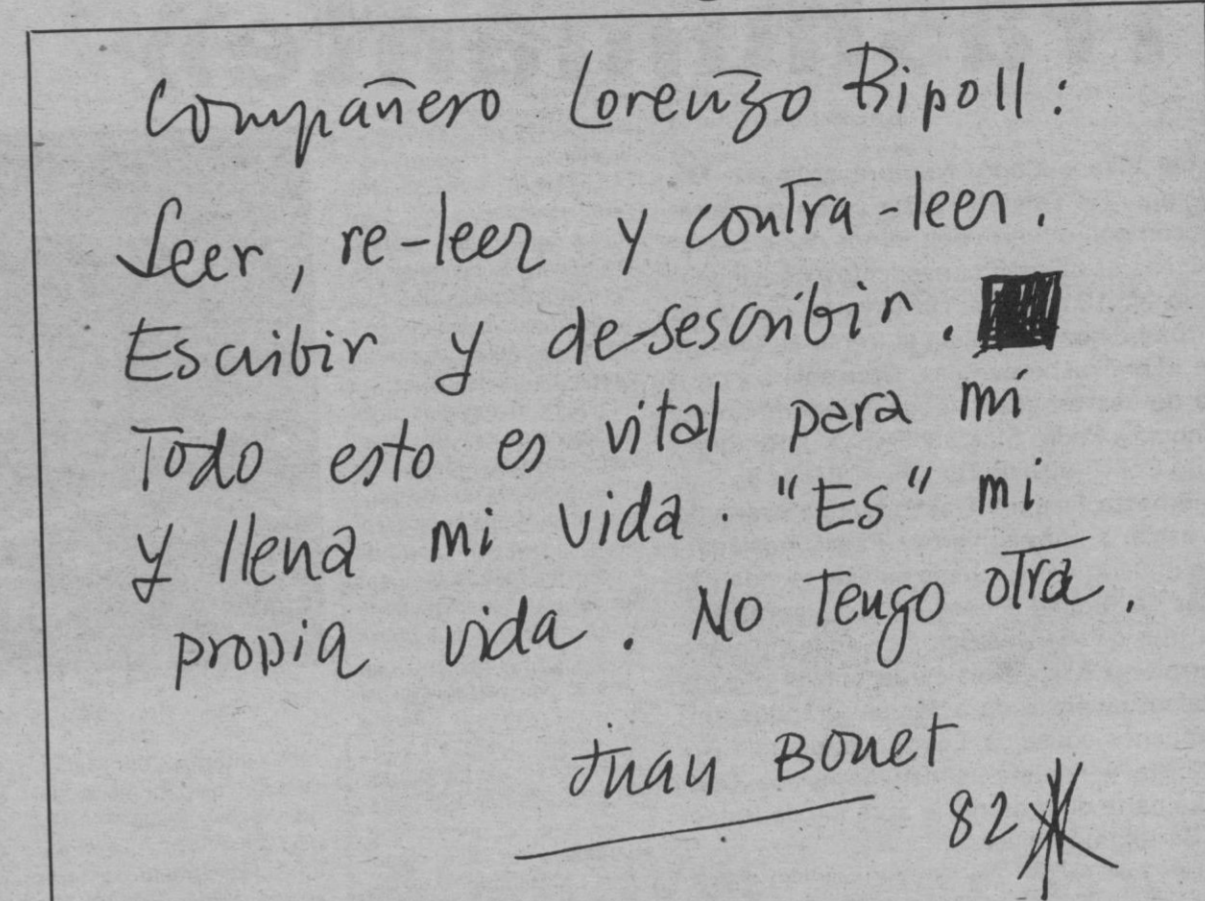 Compañero Lorenzo Ripoll:
Leer, re-leer y contra-leer.
Escribir y desescribir.
Todo esto es vital para mí
y llena mi vida. "Es" mi
propia vida. No Tengo otra.
Juan Bonet
82